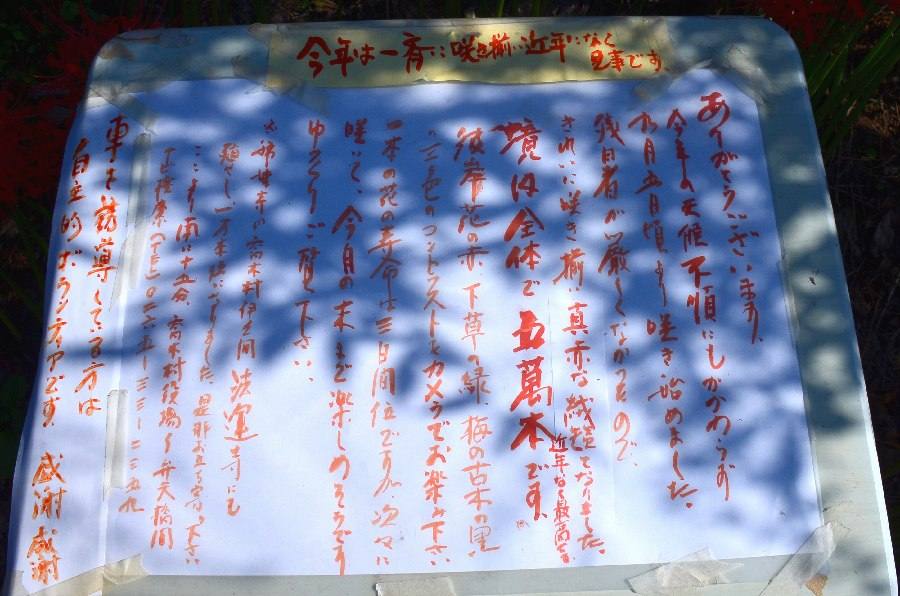 今年は一斉に咲き揃い近年になく
見事です
ありがとうございます。
今年の天候不順にもかかわらず
九月五日頃より咲き始めました。
残日者が厳しくなかったので、
きれいに咲き揃い真赤な絨毯となりました。
近年なく最高です
境内全体で五萬本です。
彼岸花の赤、下草の緑、梅の古木の黒
三色のコントラストをカメラでお楽み下さい
一本の花の寿命は三日間位ですが、次々に
咲いて、今月の末まで楽しめそうです
ゆっくりご覧下さい、
姉妹寺が高木村伊久間法運寺にも
一万本咲いております是非お立ち寄り下さい
ここより南に十五分、高木村役場〜弁天橋間
車を誘導している方は
自主的ボランティアです。感謝感謝